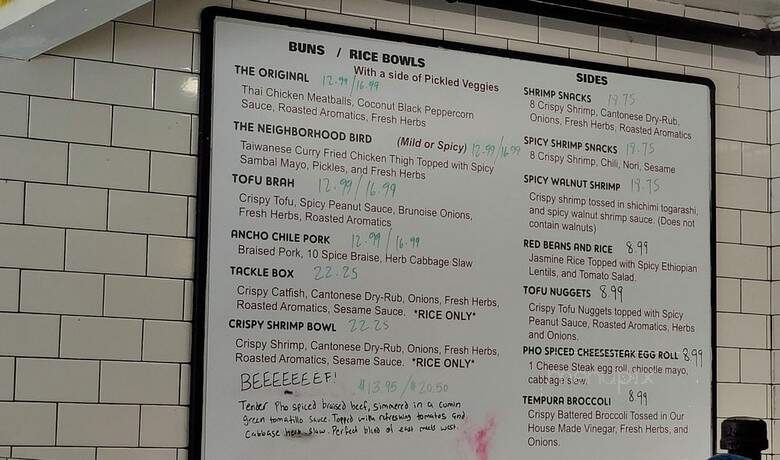 BUNS / RICE BOWLS
With a side of Pickled Veggies
THE ORIGINAL 12.99/16.99
Thai Chicken Meatballs, Coconut Black Peppercorn
Sauce, Roasted Aromatics, Fresh Herbs
THE NEIGHBORHOOD BIRD (Mild or Spicy) 12.99/16.99
Taiwanese Curry Fried Chicken Thigh Topped with Spicy
Sambal Mayo, Pickles, and Fresh Herbs
TOFU BRAH 12.99/16.99
Crispy Tofu, Spicy Peanut Sauce, Brunoise Onions,
Fresh Herbs, Roasted Aromatics
ANCHO CHILE PORK 12.99/16.99
Braised Pork, 10 Spice Braise, Herb Cabbage Slaw
TACKLE BOX 22.25
Crispy Catfish, Cantonese Dry-Rub, Onions, Fresh Herbs,
Roasted Aromatics, Sesame Sauce. *RICE ONLY*
CRISPY SHRIMP BOWL 22.25
Crispy Shrimp, Cantonese Dry-Rub, Onions, Fresh Herbs,
Roasted Aromatics, Sesame Sauce. *RICE ONLY*
BEEEEEEEF! $13.95/$20.50
Tender Pho spiced braised beef, simmered in a cumin
green tomatillo sauce. Topped with refreshing tomatos and
Cabbage slaw. Perfect blend of east meets west.
SIDES
SHRIMP SNACKS 19.75
8 Crispy Shrimp, Cantonese Dry-Rub,
Onions, Fresh Herbs, Roasted Aromatics
SPICY SHRIMP SNACKS 19.75
8 Crispy Shrimp, Chili, Nori, Sesame
SPICY WALNUT SHRIMP 19.75
Crispy shrimp tossed in shichimi togarashi,
and spicy walnut shrimp sauce. (Does not
contain walnuts)
RED BEANS AND RICE 8.99
Jasmine Rice Topped with Spicy Ethiopian
Lentils, and Tomato Salad.
TOFU NUGGETS 8.99
Crispy Tofu Nuggets topped with Spicy
Peanut Sauce, Roasted Aromatics, Herbs
and Onions.
PHO SPICED CHEESESTEAK EGG ROLL 8.99
1 Cheese Steak egg roll, chipotle mayo,
cabbage slaw.
TEMPURA BROCCOLI 8.99
Crispy Battered Broccoli Tossed in Our
House Made Vinegar, Fresh Herbs, and
Onions.